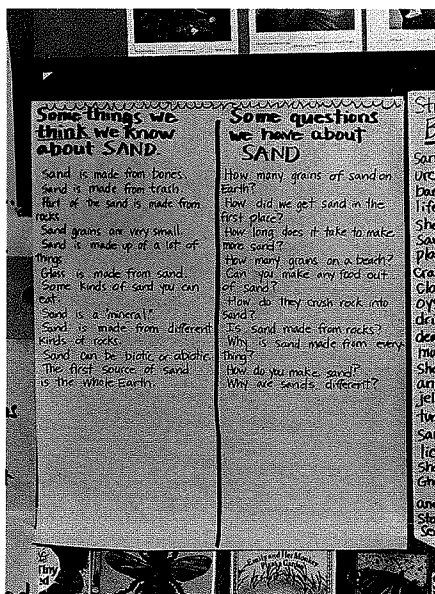 Some things we
think we know
about SAND.
Sand is made from bones.
Sand is made from trash.
Part of the sand is made from
rocks.
Sand grains are very small.
Sand is made up of a lot of
things
Glass is made from sand.
Some kinds of sand you can
eat.
Sand is a "mineral"
Sand is made from different
kinds of rocks.
Sand can be biotic or abiotic.
The first source of sand
is the whole Earth.
Some questions
we have about
SAND
How many grains of sand on
Earth?
How did we get sand in the
first place?
How long does it take to make
more sand?
How many grains on a beach?
Can you make any food out
of sand?
How do they crush rock into
sand?
Is sand made from rocks?
Why is sand made from every-
thing?
How do you make sand?
Why are sands different?
Tiny